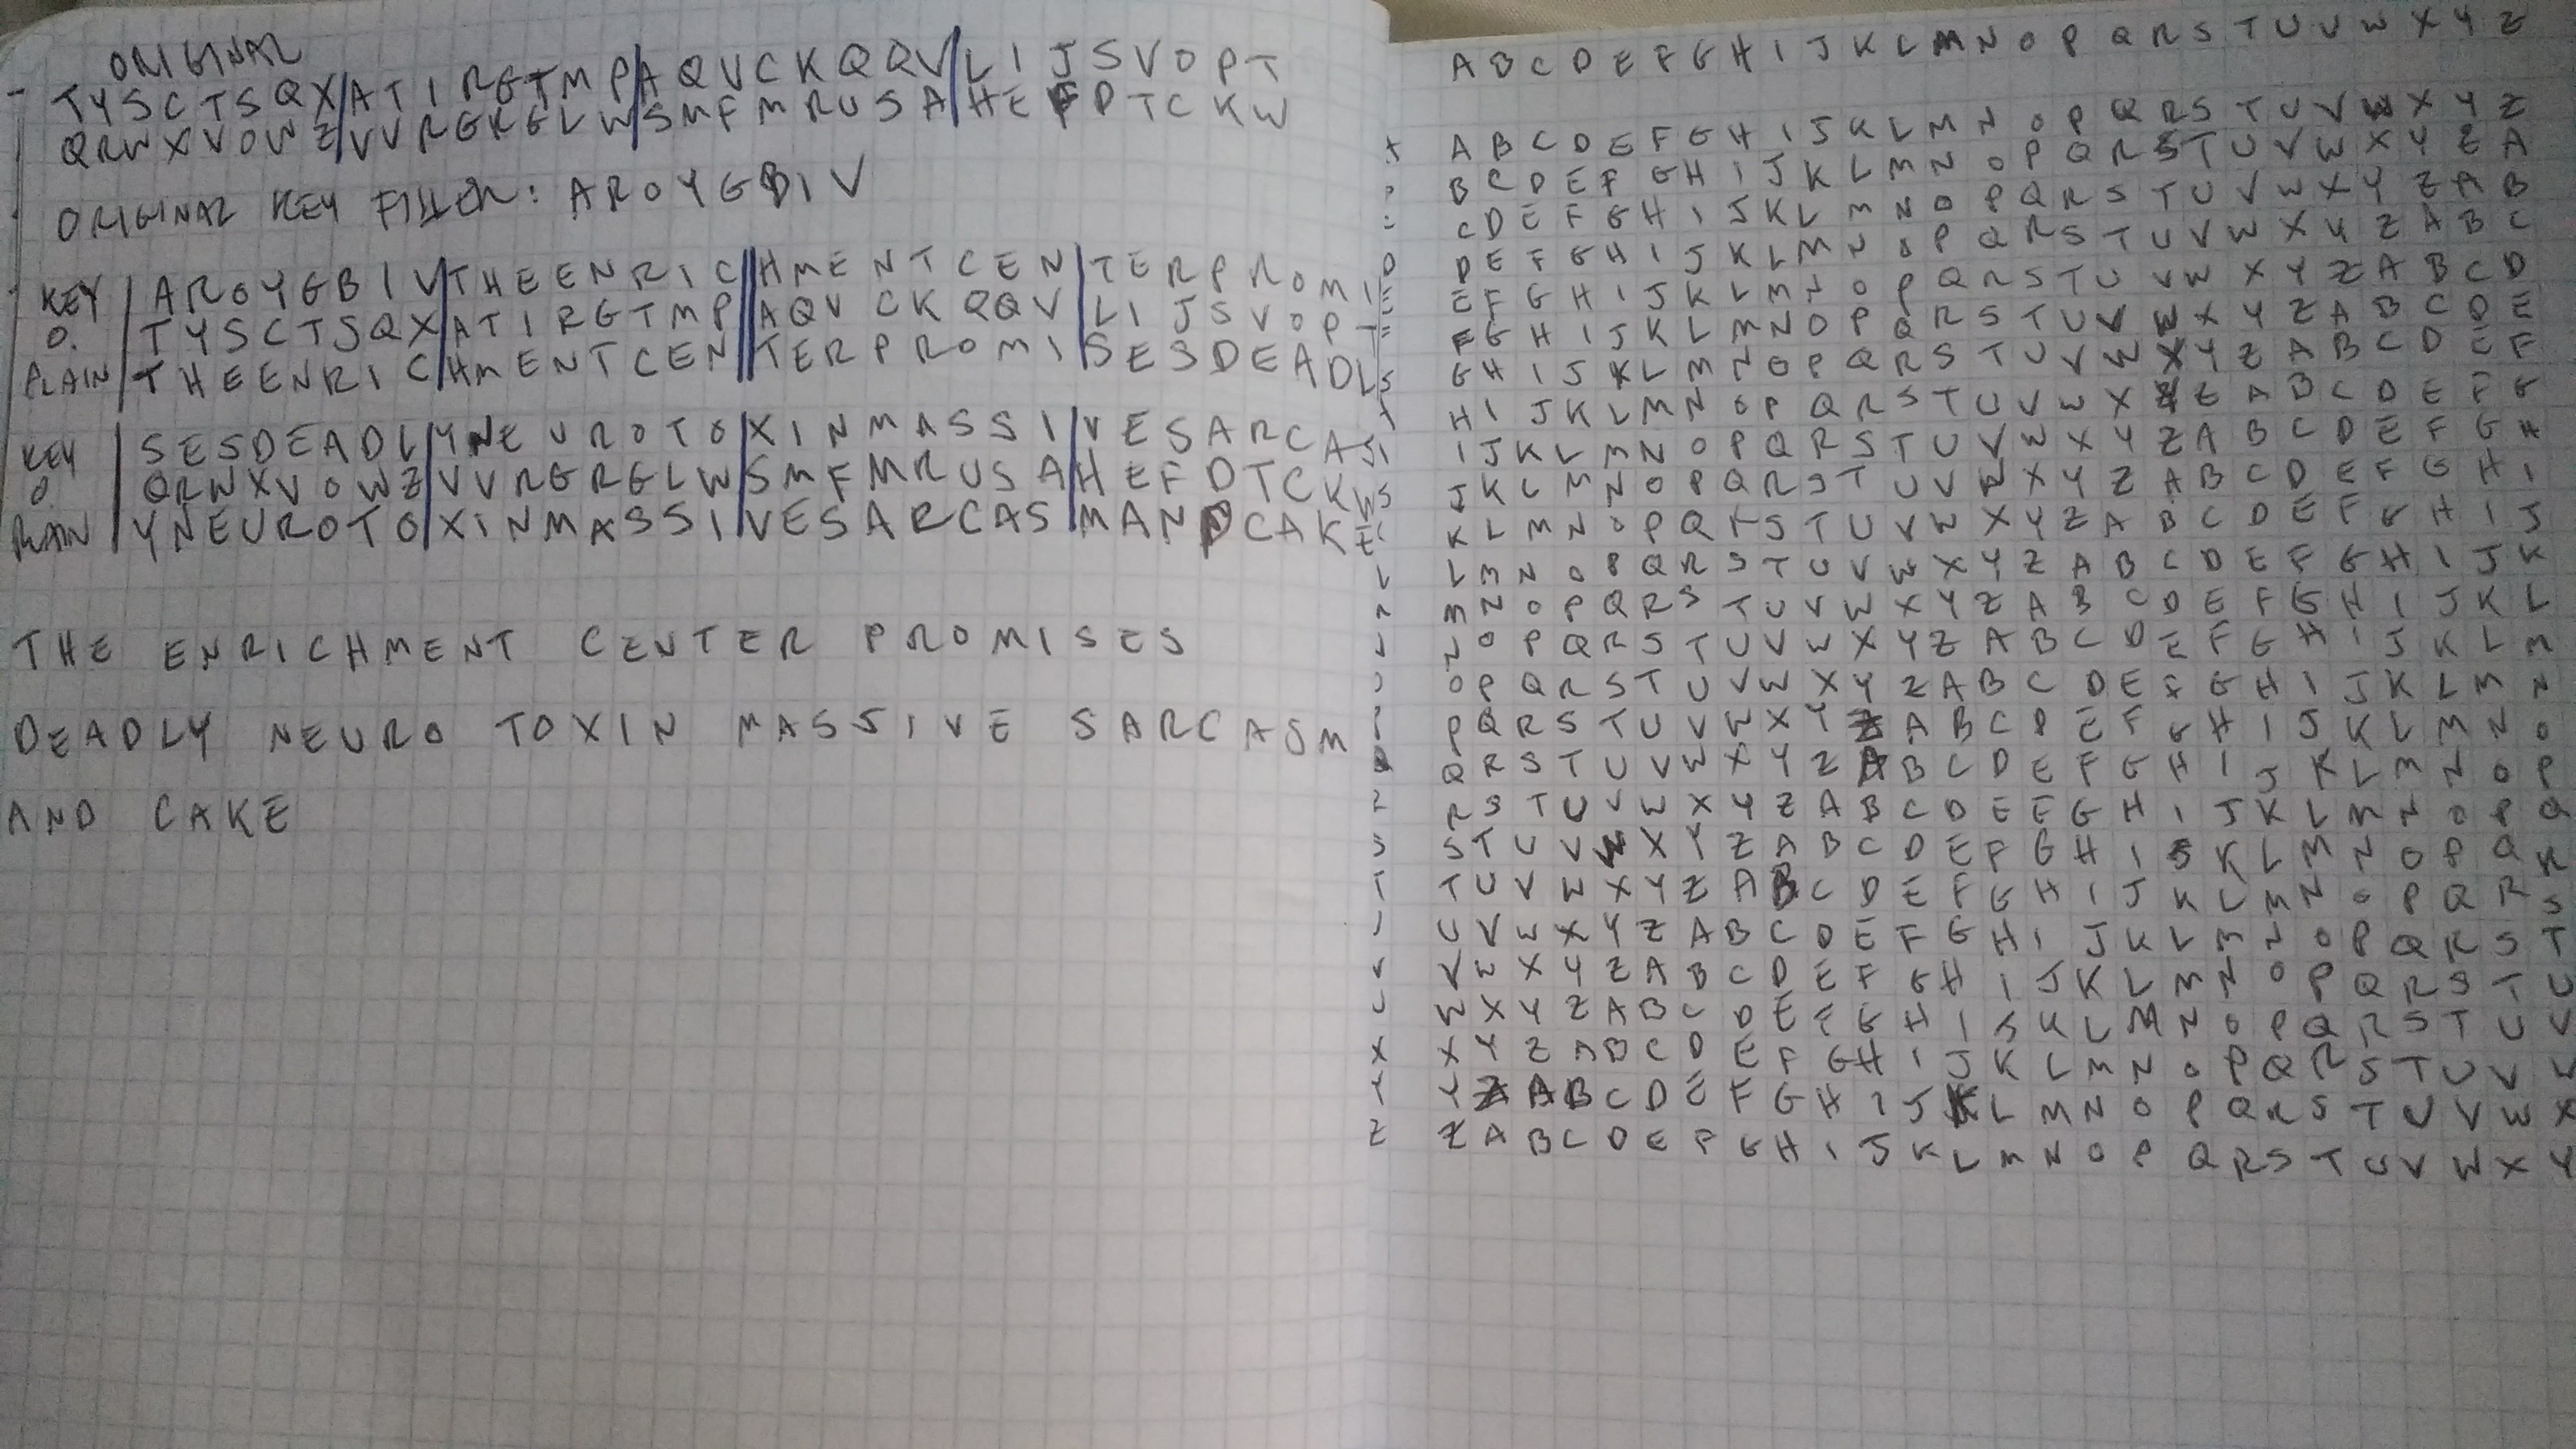 ORIGINAL
- TYSCTSQX/ATIRGTMP/AQVCKQQV/LIJSVOPT
- QRWXVOWZ/VVRGRGLW/SMFMRUSA/HEFDTCKW
ORIGINAL KEY FILLER: AROYGBIV
KEY | AROYGBIV|THEENRIC|HMENTCEN|TERPROMI
O. | TYSCTSQX|ATIRGTMP|AQVCKQQV|LIJSVOPT
PLAIN | THEENRIC|HMENTCEN|TERPROMI|SESDEADL
KEY | SESDEADL|YNEUROTO|XINMASSI|VESARCAS
O. | QRWXVOWZ|VVRGRGLW|SMFMRUSA|HEFDTCKW
PLAIN | YNEUROTO|XINMASSI|VESARCAS|MANDCAKE
THE ENRICHMENT CENTER PROMISES
DEADLY NEURO TOXIN MASSIVE SARCASM
AND CAKE
A B C D E F G H I J K L M N O P Q R S T U V W X Y Z
A B C D E F G H I J K L M N O P Q R S T U V W X Y Z
B C D E F G H I J K L M N O P Q R S T U V W X Y Z A
C D E F G H I J K L M N O P Q R S T U V W X Y Z A B
D D E F G H I J K L M N O P Q R S T U V W X Y Z A B C
E E F G H I J K L M N O P Q R S T U V W X Y Z A B C D
F G H I J K L M N O P Q R S T U V W X Y Z A B C D E
G H I J K L M N O P Q R S T U V W X Y Z A B C D E F
H I J K L M N O P Q R S T U V W X Y Z A B C D E F G
I J K L M N O P Q R S T U V W X Y Z A B C D E F G H
J K L M N O P Q R S T U V W X Y Z A B C D E F G H I
K L M N O P Q R S T U V W X Y Z A B C D E F G H I J
L L M N O P Q R S T U V W X Y Z A B C D E F G H I J K
M N O P Q R S T U V W X Y Z A B C D E F G H I J K L
N O P Q R S T U V W X Y Z A B C D E F G H I J K L M
O P Q R S T U V W X Y Z A B C D E F G H I J K L M N
P Q R S T U V W X Y Z A B C D E F G H I J K L M N O
Q Q R S T U V W X Y Z A B C D E F G H I J K L M N O P
R R S T U V W X Y Z A B C D E F G H I J K L M N O P Q
S S T U V W X Y Z A B C D E F G H I J K L M N O P Q R
T T U V W X Y Z A B C D E F G H I J K L M N O P Q R S
U V W X Y Z A B C D E F G H I J K L M N O P Q R S T
V V W X Y Z A B C D E F G H I J K L M N O P Q R S T U
W X Y Z A B C D E F G H I J K L M N O P Q R S T U V
X X Y Z A B C D E F G H I J K L M N O P Q R S T U V W
Y Y Z A B C D E F G H I J K L M N O P Q R S T U V W X
Z Z A B C D E F G H I J K L M N O P Q R S T U V W X Y